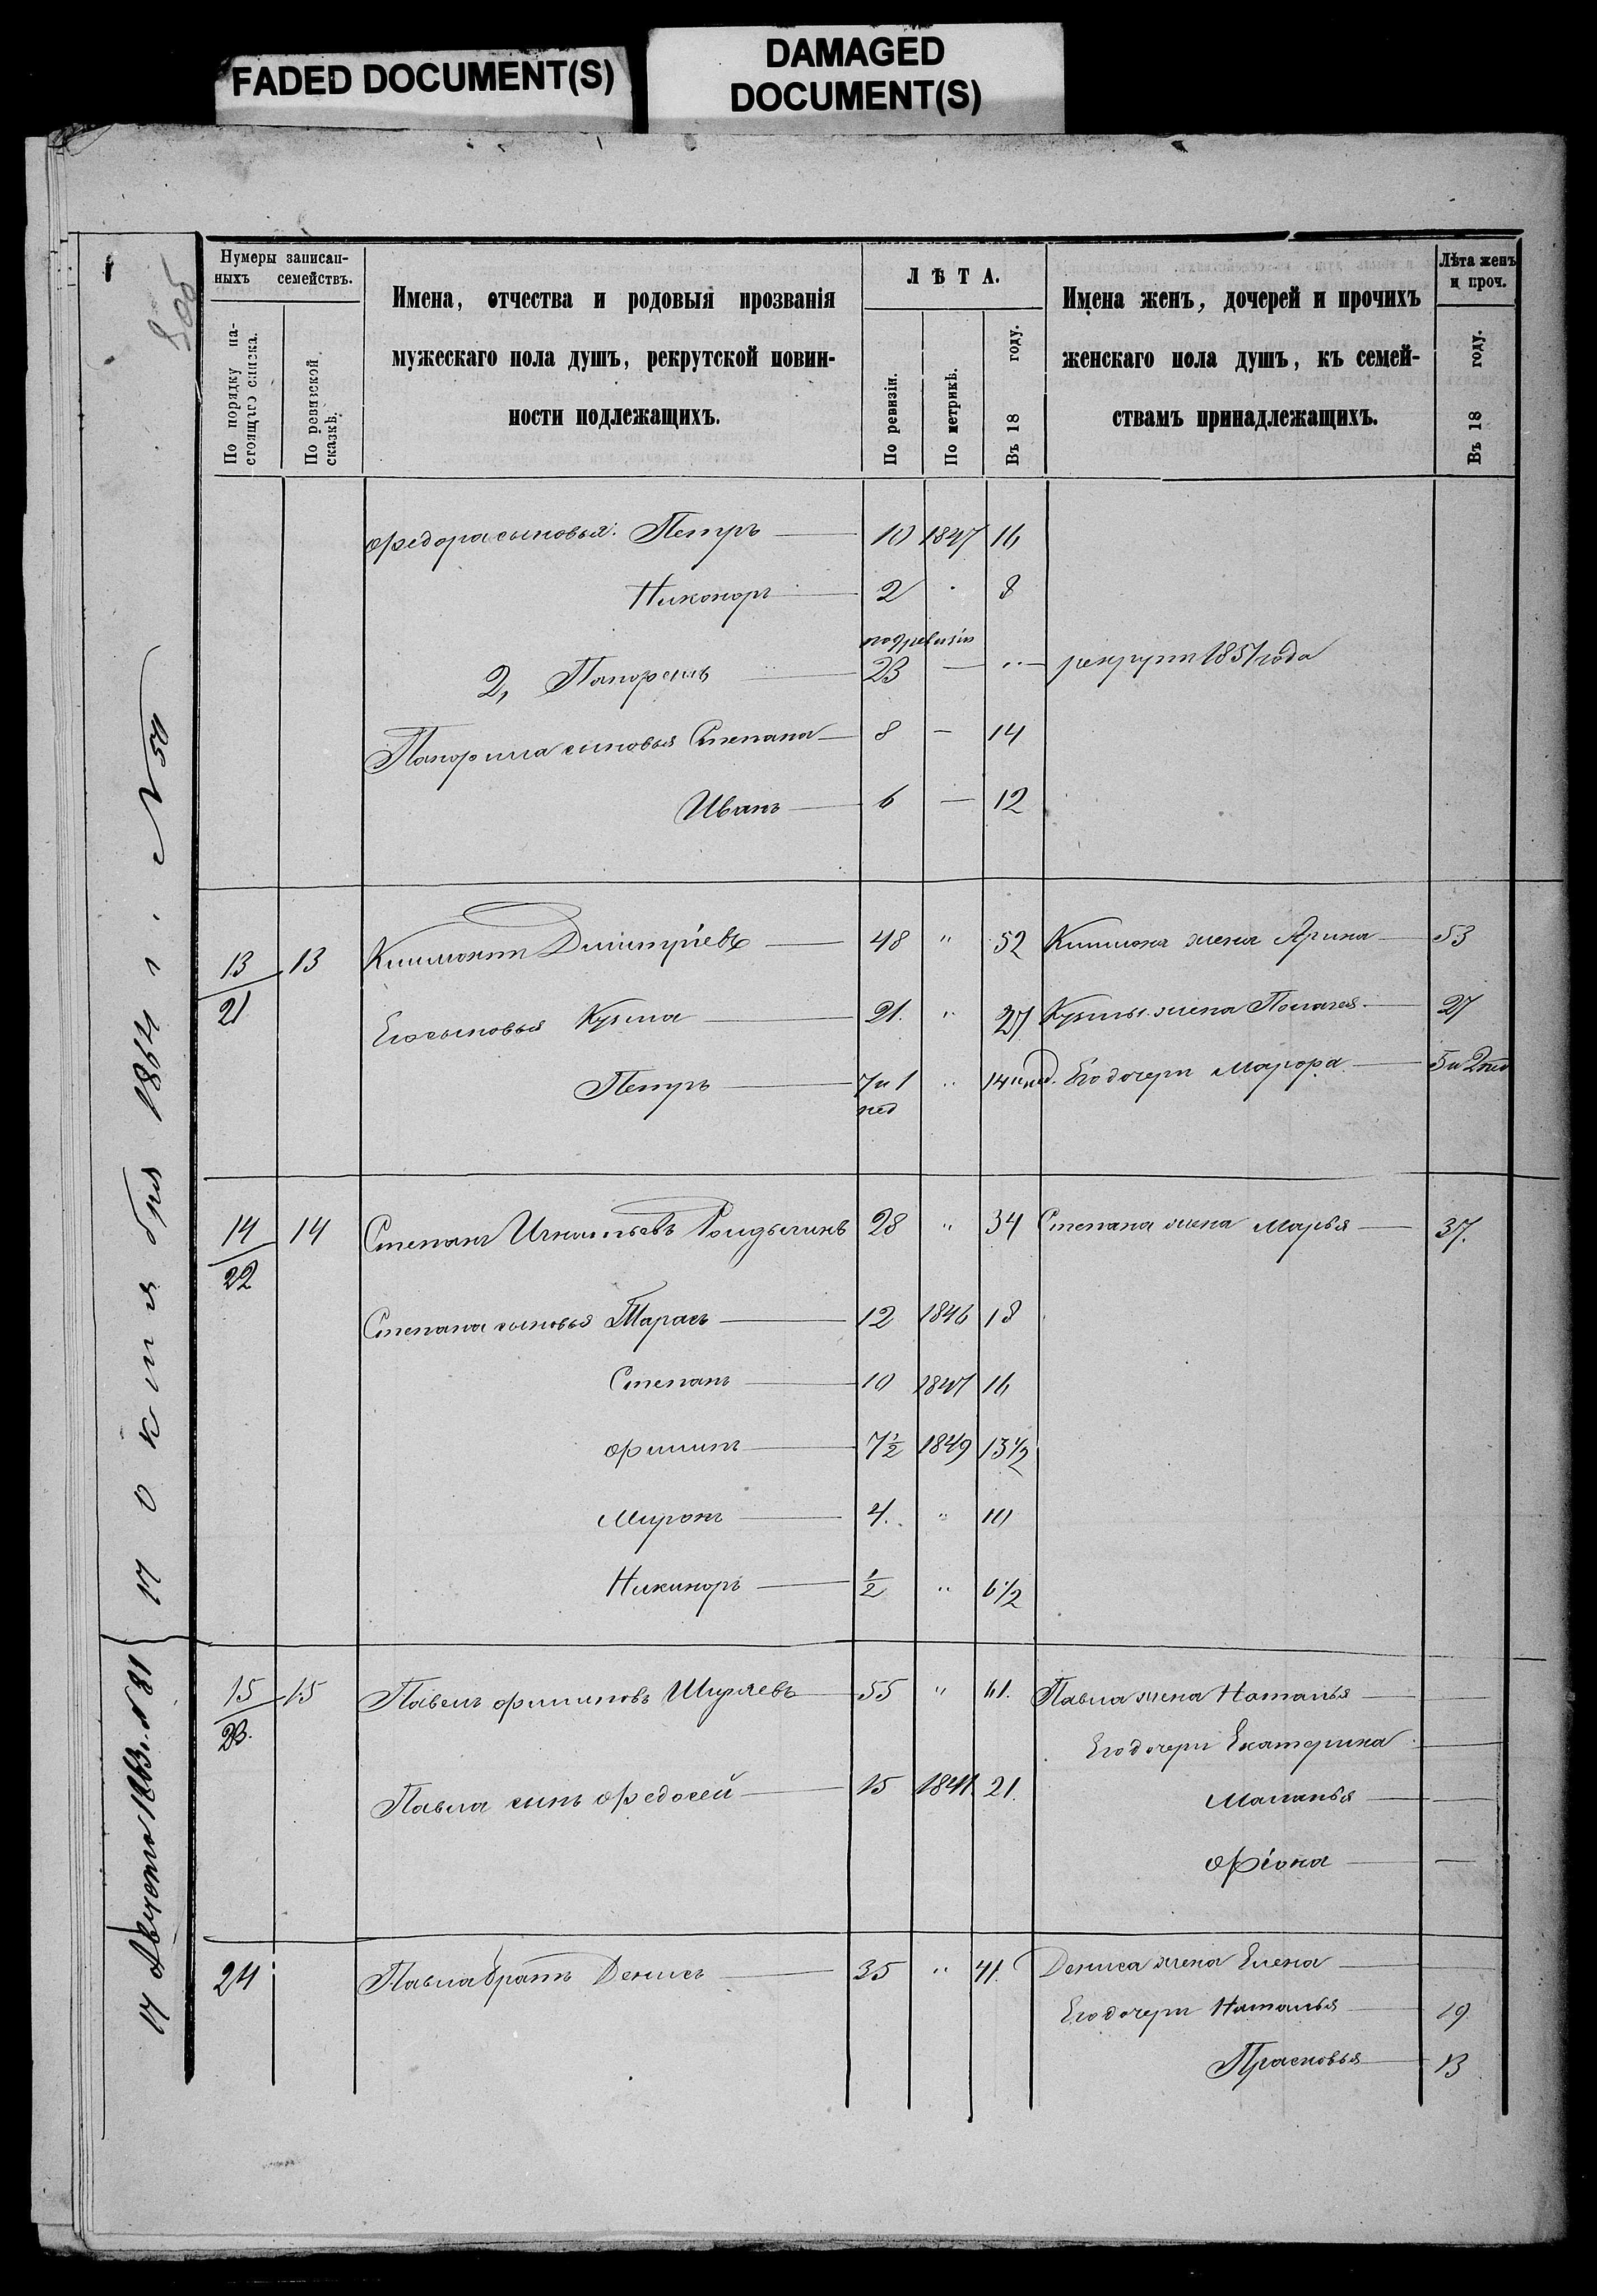 FADED DOCUMENT(S)
DAMAGED
DOCUMENT(S)
805
Нумеры записан-
ныхъ семействъ.
По порядку на-
стоящаго списка.
По ревизской
сказкѣ.
Имена, отчества и родовыя прозванія
мужескаго пола душъ, рекрутской повин-
ности подлежащихъ.
ЛѢТА.
По ревизіи.
По метрикѣ.
Въ 18 году.
Имена женъ, дочерей и прочихъ
женскаго пола душъ, къ семей-
ствамъ принадлежащихъ.
Лѣта женъ
и проч.
Въ 18 году.
Федора сыновья: Петръ — 10 1847 16
Никоноръ — 2 8
2, 23 — рекрутъ 1851 года
сыновья Степана — 8 — 14
Иванъ — 6 — 12
13 13 Дмитріевъ — 48 " 52 жена Арина — 53
21
Его сыновья Кузма — 21. " 27 Кузмы жена Палагея — 27
Петръ — 7 и 1 " 14 и нед. Его дочери Марфа — 5 и 2
нед
14 14 Степанъ Игнатьевъ 28 " 34 Степана жена Марья — 37.
22
Степана сыновья Тарасъ — 12 1846 18
Степанъ — 10 1847 16
Филипъ — 7½ 1849 13½
Миронъ — 4. " 10
Никиноръ — ½ " 6½
15 15 Павелъ Филиповъ Ширяевъ 55 " 61. Павла жена Наталья —
23.
Его дочери Екатерина —
Павла сынъ Федосей — 15 1841 21. Маланья —
Фіона —
24 Павла братъ Денисъ — 35 " 41. Дениса жена Елена —
Его дочери Наталья — 19
Прасковья — 13
17 Августа 1863. № 81 } 17 октября 1864 г. № 50